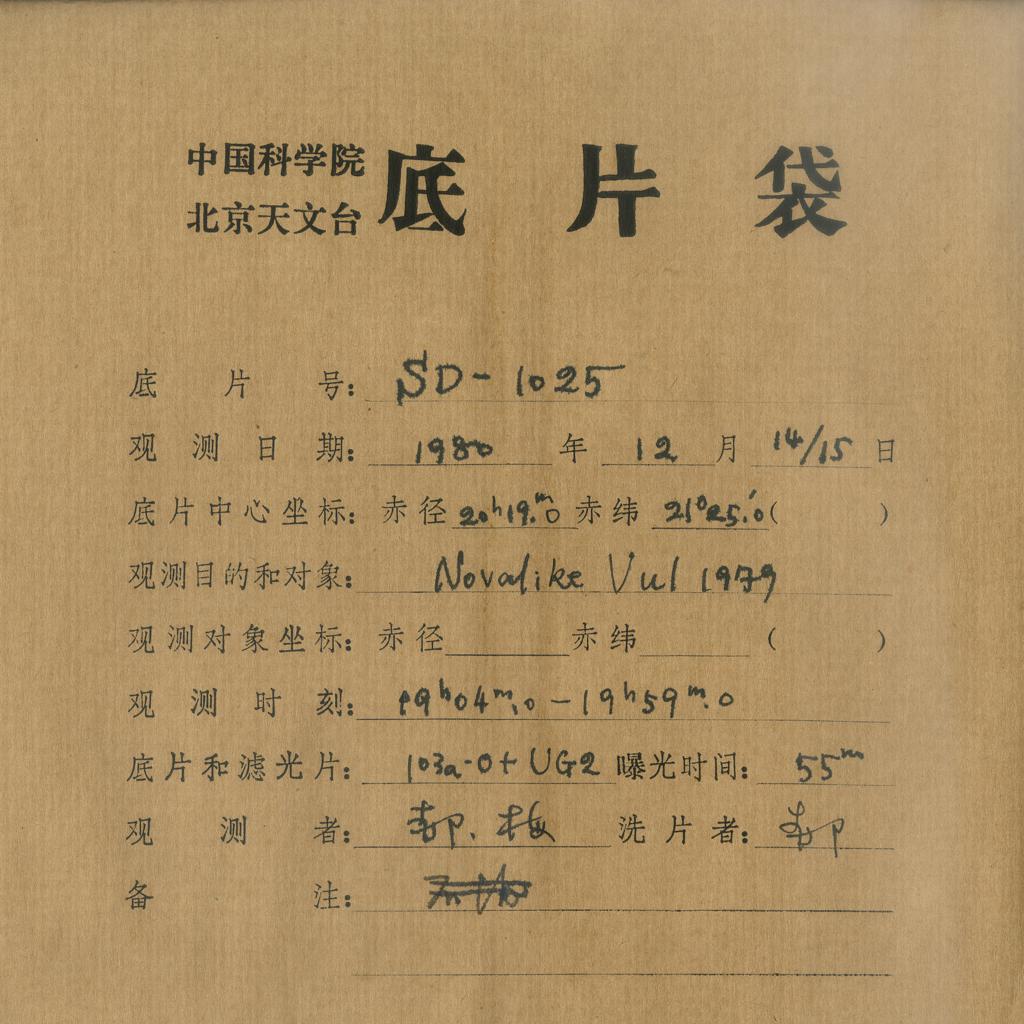 中国科学院
北京天文台
底片袋
底片号: SD-1025
观测日期: 1980年12月14/15日
底片中心坐标: 赤径20ʰ19.ᵐ0 赤纬21°25.′0( )
观测目的和对象: Novalike Vul 1979
观测对象坐标: 赤径 赤纬 ( )
观测时刻: 19ʰ04ᵐ.0-19ʰ59ᵐ.0
底片和滤光片: 103a-O+UG2 曝光时间: 55ᵐ
观测者: 郝、梅 洗片者: 郝
备注: